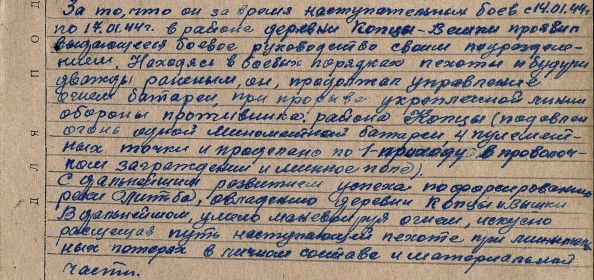 За то, что он за время наступательных боев с 14.01.44г.
по 17.01.44г. в районе деревни Копцы-Вешки проявил
выдающееся боевое руководство своим подразделе-
нием. Находясь в боевых порядках пехоты и будучи
дважды раненым, он, продолжал управление
огнем батареи, при прорыве укрепленной линии
обороны противника района Копцы (подавлен
огонь одной минометной батареи, 4 пулемет-
ных точки и проделано по 1 проходу в проволоч-
ном заграждении и минное поле).
С дальнейшим развитием успеха по форсированию
реки, овладению деревни Копцы и Вешки
В дальнейшем, умело маневрируя огнем, искусно
расчищая путь наступающей пехоте при минималь-
ных потерях в личном составе и материальной
части.
ДЛЯ ПОД